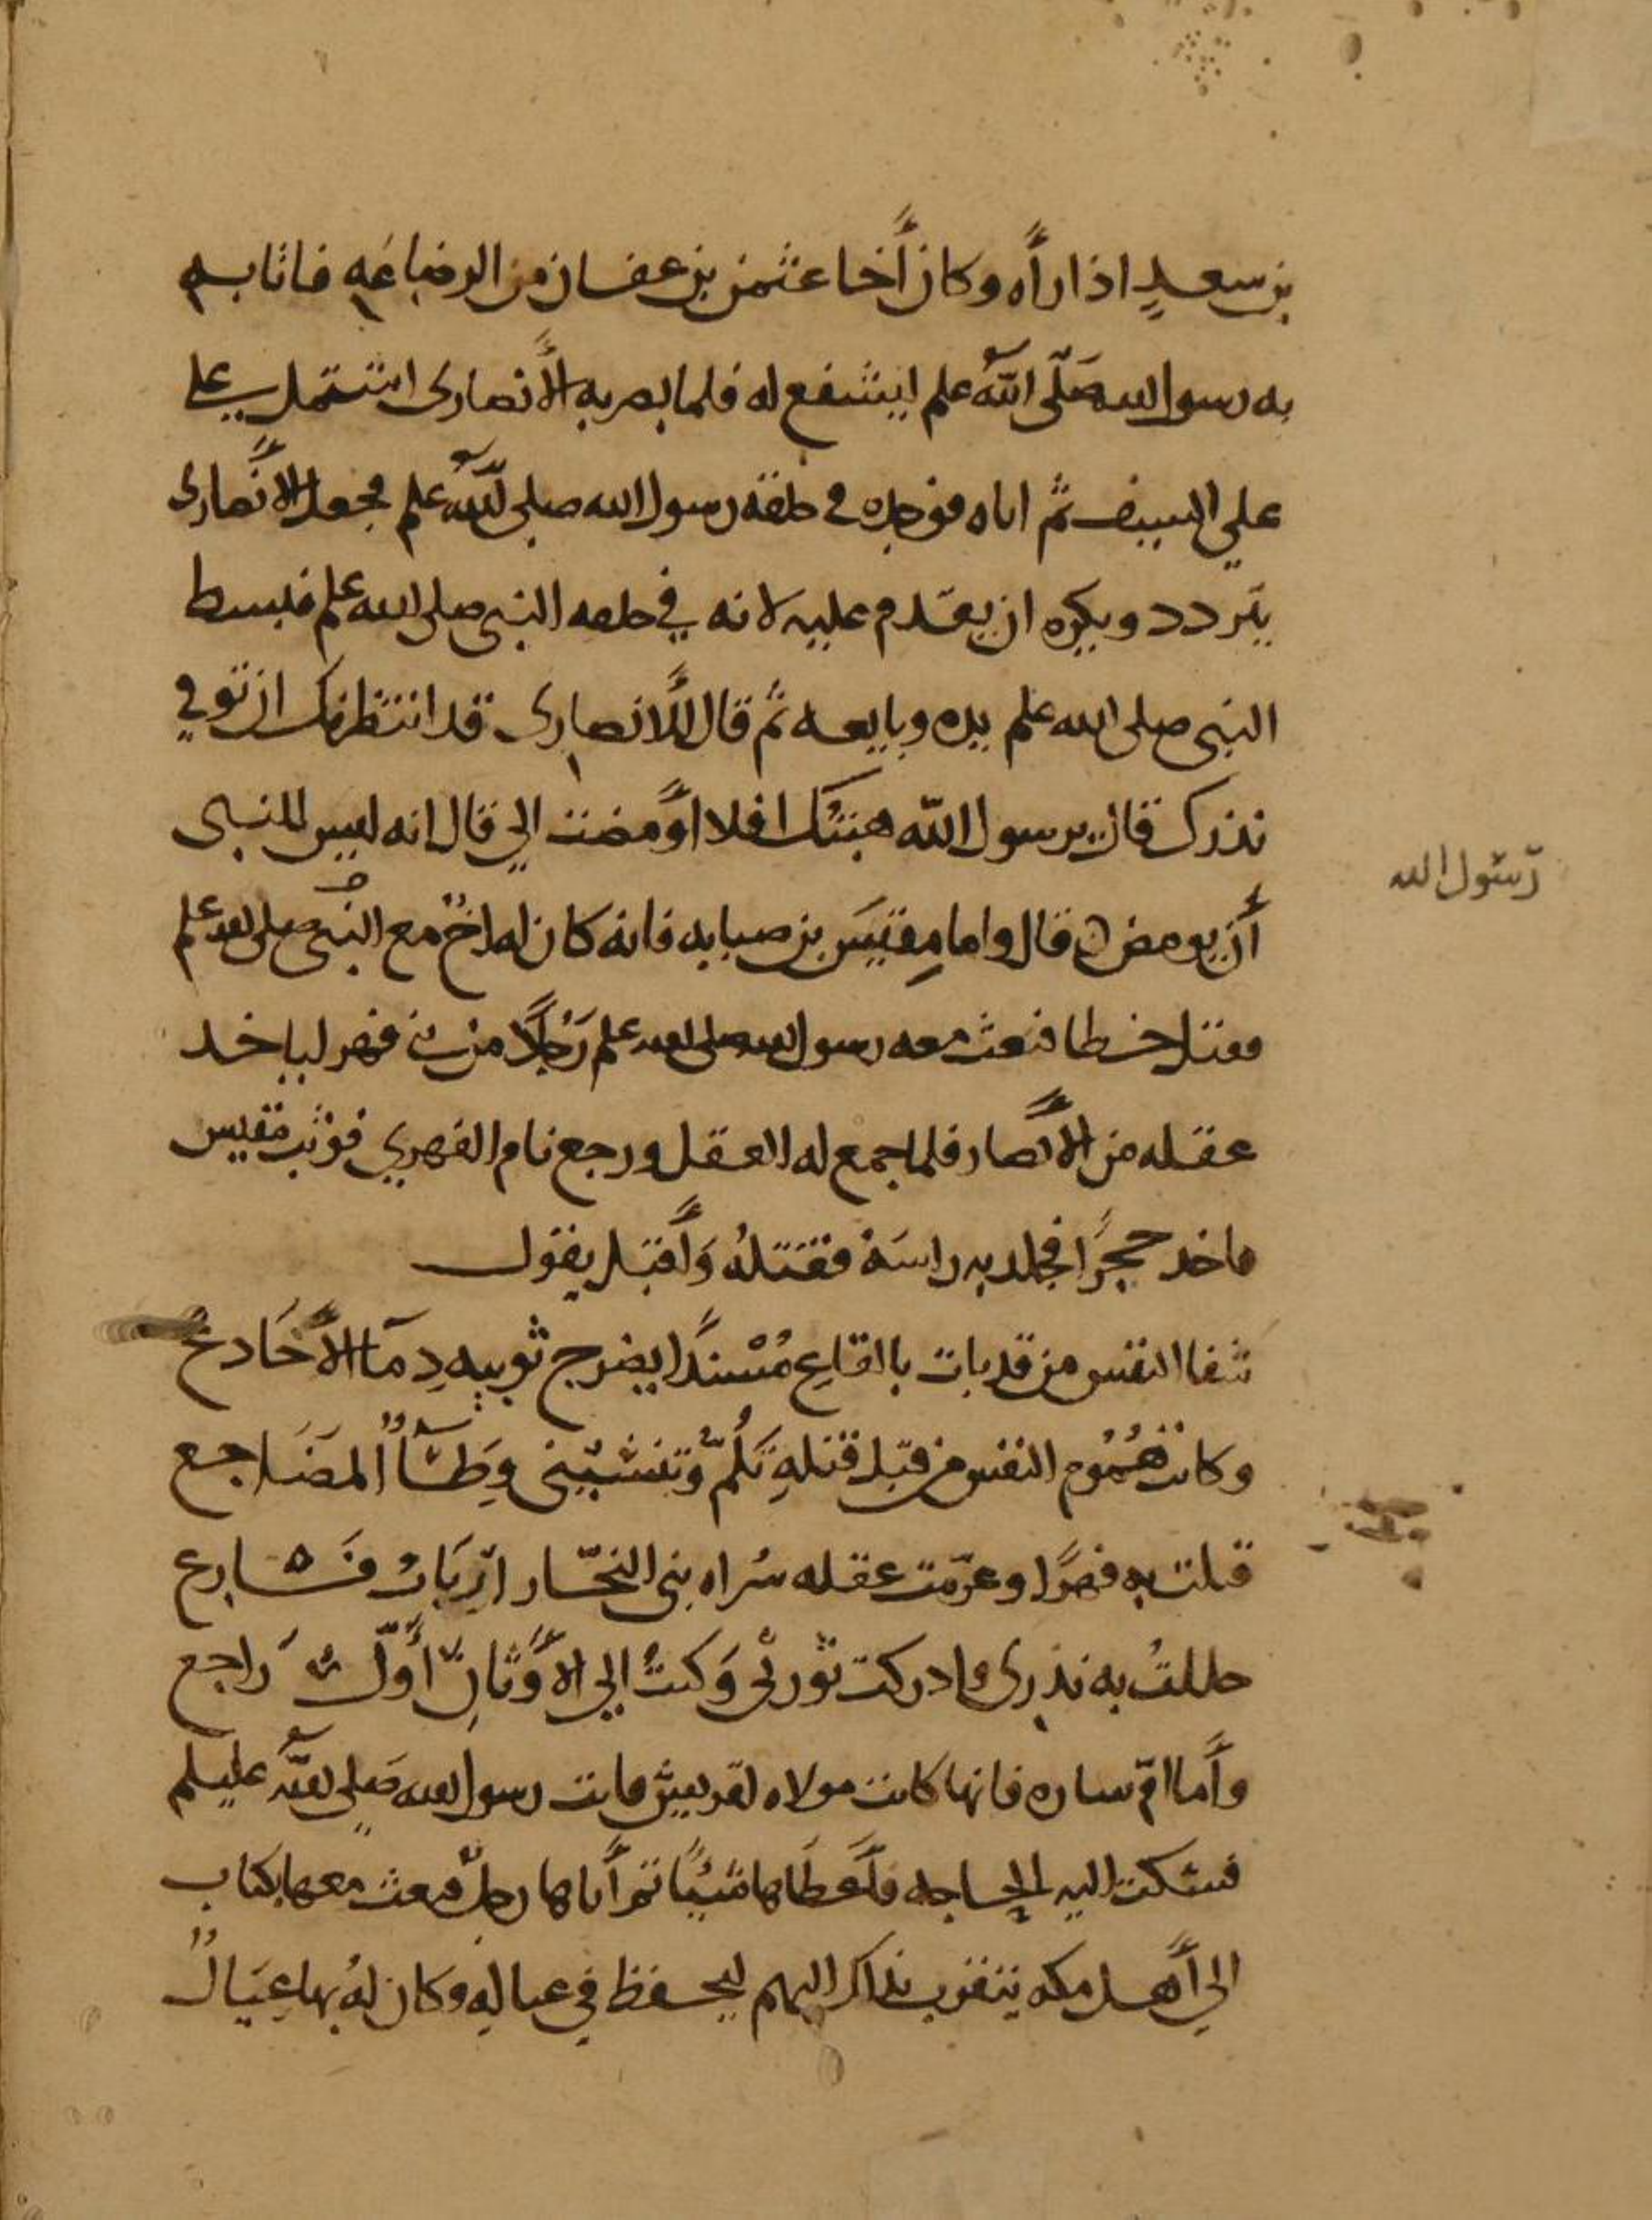 بن سعد اذا رأه وكان أخا عثمن بن عفان من الرضاعه فاتا به
به رسول الله صلى الله علم ليشفع له فلما بصر به الأنصارى اشتمل علي
علي السيف ثم اتاه فوجده في حلقه رسول الله صلى الله علم فجعل الأنصارى
يتردد ويكره ان يقدم عليه لانه في حلقه النبي صلى الله علم فبسط
النبي صلى الله علم يده وبايعه ثم قال للأنصارى قد انتظرتك ان توفي
نذرك قال يرسول الله هبتك افلا أومضت الي قال انه ليس للنبي
رسول الله
أن يومض قال واما مقيس بن صبابه فانه كان له اخ مع النبي صلى الله علم
فقتل خطا فبعث معه رسول الله صلى الله علم رجلا من بني فهر لياخد
عقله من الأنصار فلما جمع له العقل ورجع نام الفهري فوثب مقيس
فاخد حجرا فجلد به راسه فقتله وأقبل يقول
شفا النفس من قد بات بالقاع مسندا يضرج ثوبيه دما الأخادع
وكانت هموم النفس من قبل قتله تلم وتنسيني وطأ المضاجع
قتلت به فهرا وغرمت عقله سراه بني النجار ارباب فارع
حللت به نذرى وادركت ثورتي وكنت الي الأوثان أول راجع
وأما ام ساره فانها كانت مولاه لقريش فاتت رسول الله صلى الله عليلم
فشكت اليه الحاجه فأعطاها شيئا ثم أتاها رجل فبعث معها بكتاب
الي أهل مكه يتقرب بذاك اليهم ليحفظ في عياله وكان له بها عيال